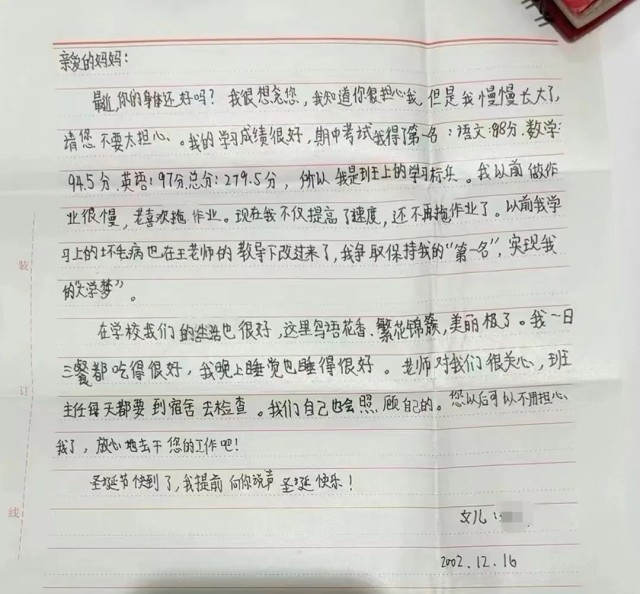 亲爱的妈妈:
最近,你的身体还好吗?我很想念您,我知道你很担心我,但是我慢慢长大了,
请您不要太担心。我的学习成绩很好,期中考试我得了第一名:语文:88分.数学:
94.5分.英语:97分.总分:279.5分,所以我是班王上的学习标兵。我以前做作
业很慢,老喜欢拖作业。现在我不仅提高了速度,还不再拖作业了。以前我学
习上的坏毛病也在王老师的教导下改过来了,我争取保持我的“第一名”,实现我
的“大学梦”。
在学校我们的生活也很好,这里鸟语花香.繁花锦簇,美丽极了。我一日
三餐都吃得很好,我晚上睡觉也睡得很好。老师对我们很关心,班
主任每天都要到宿舍去检查。我们自己也会照顾自己的。您以后可以不用担心
我了,放心地去干您的工作吧!
圣诞节快到了,我提前向你说声圣诞快乐!
女儿:
2002.12.16
装
订
线